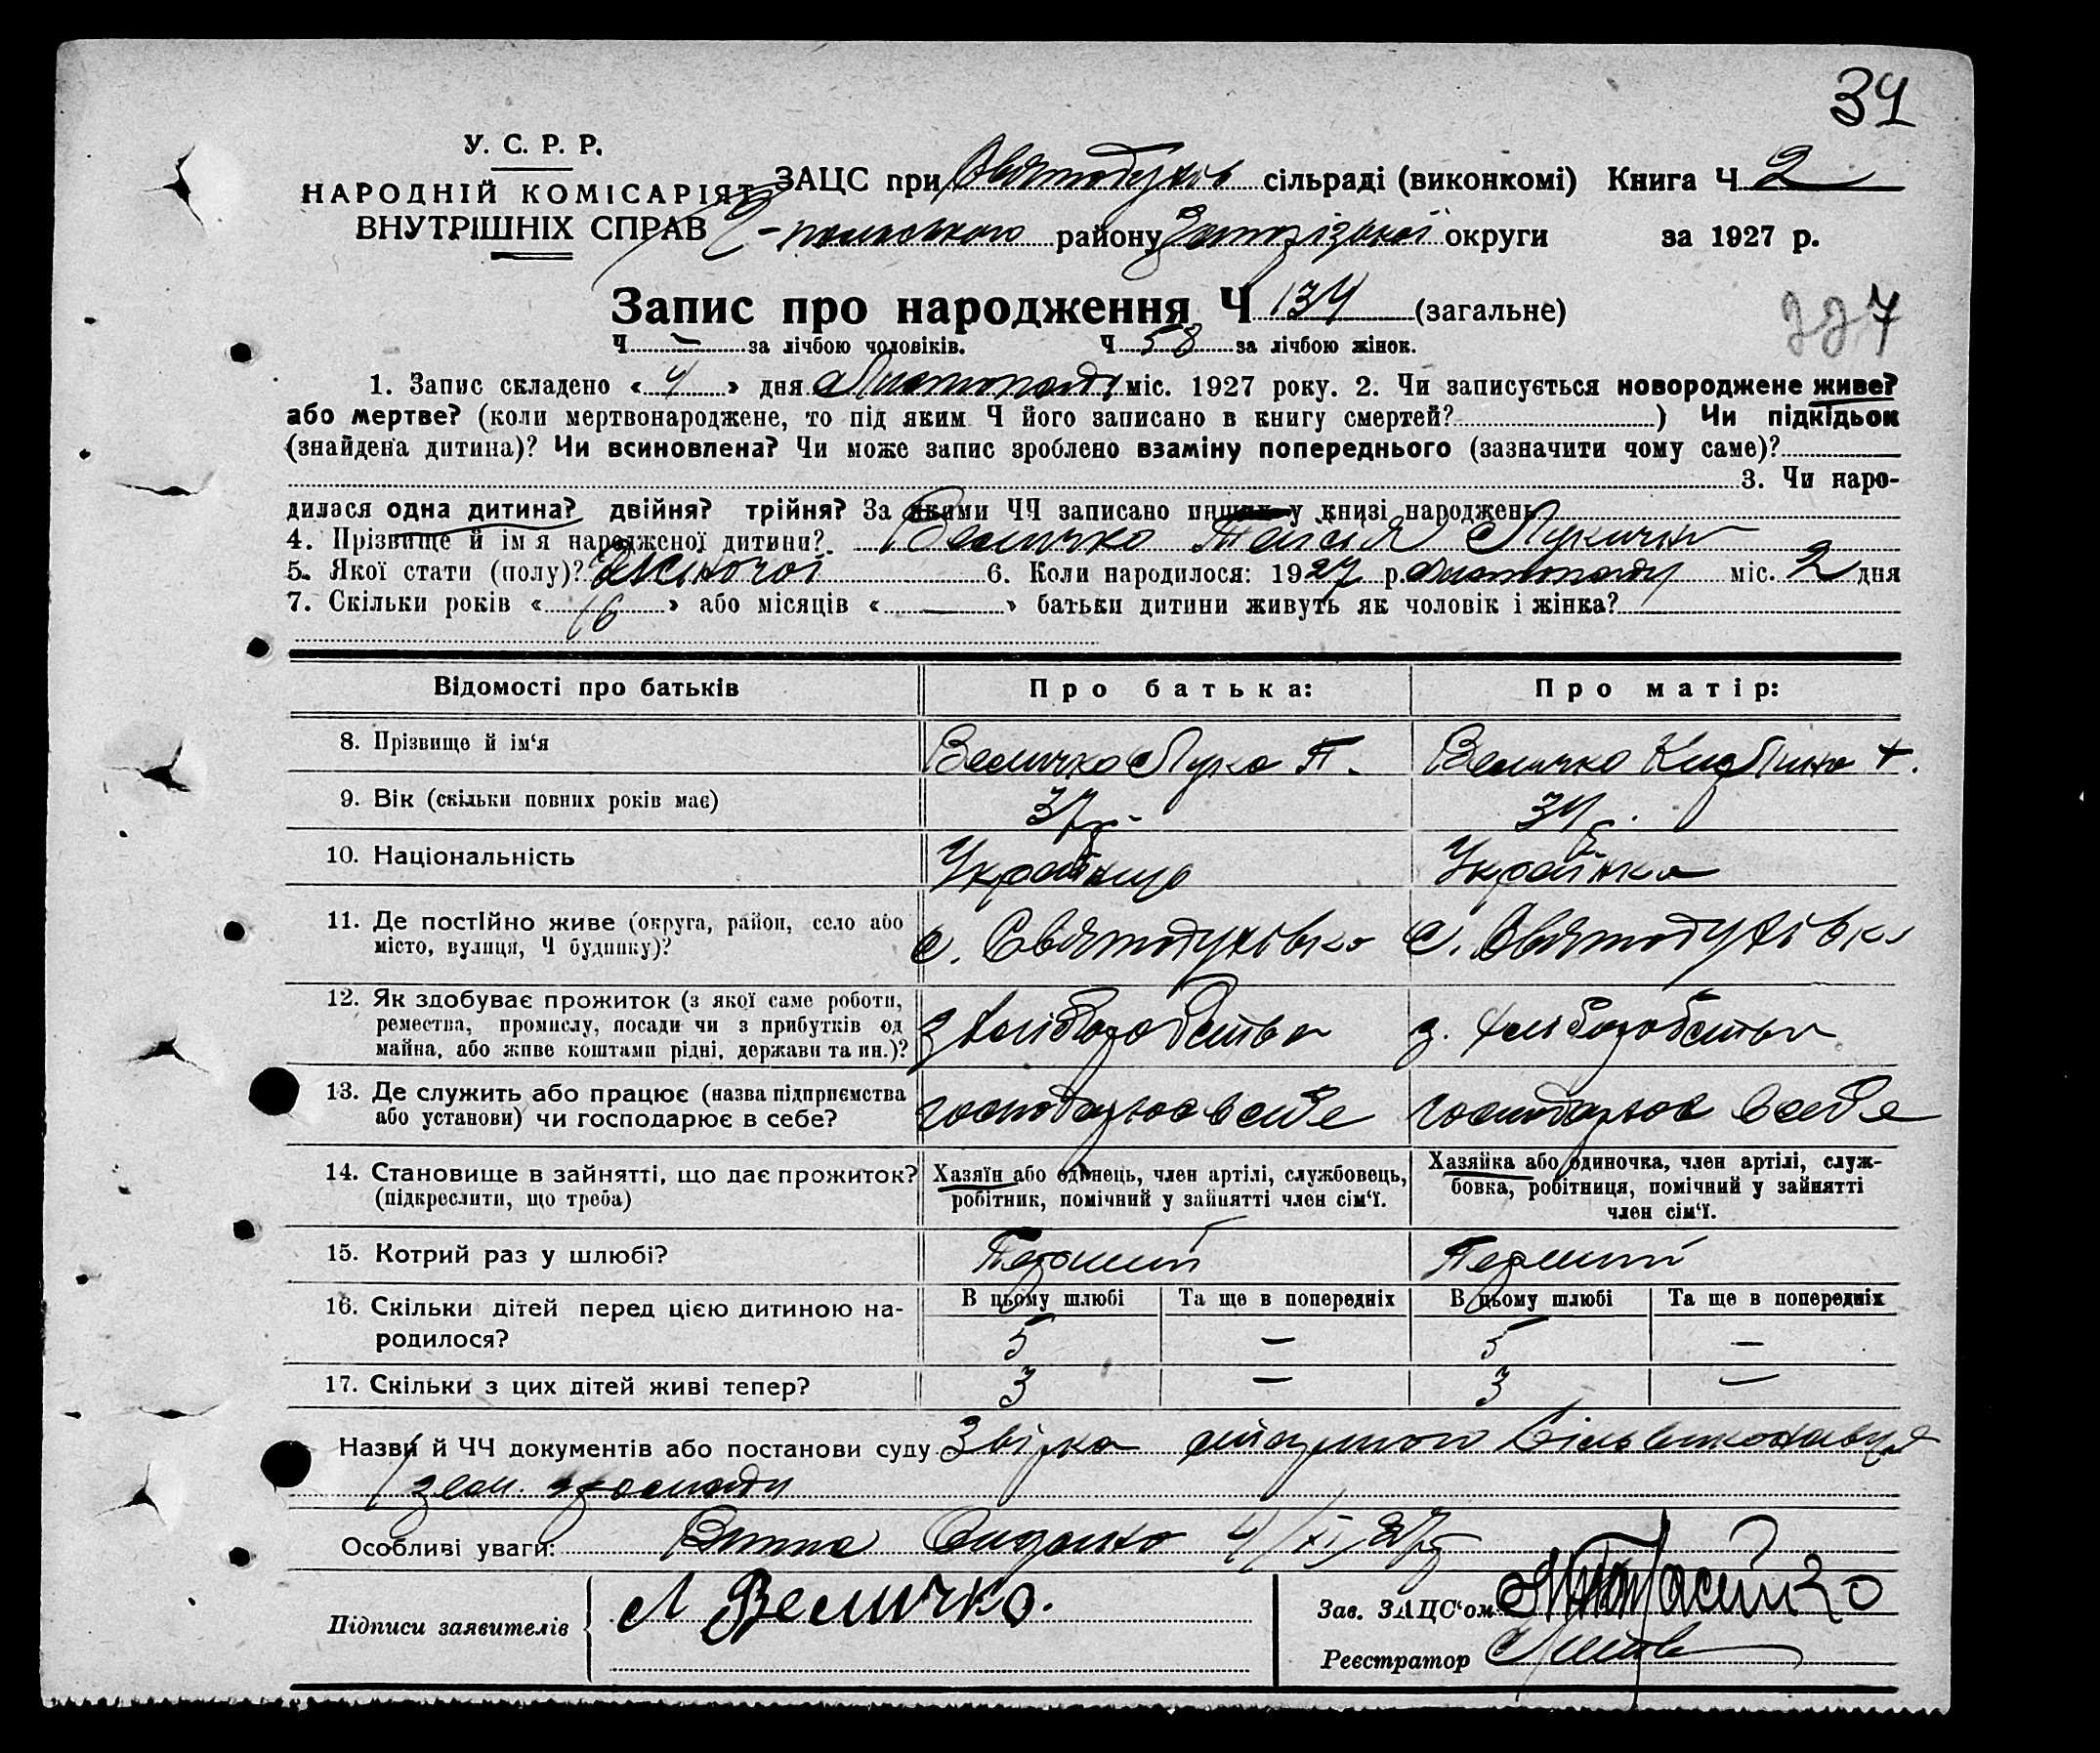 34
У. С. Р. Р.
НАРОДНІЙ КОМІСАРІЯТ
ВНУТРІШНІХ СПРАВ
ЗАЦС при Святодухів сільраді (виконкомі) Книга Ч 2
району Запорізької округи за 1927 р.
Запис про народження Ч 134 (загальне)
227
Ч — за лічбою чоловіків. Ч 58 за лічбою жінок.
1. Запис складено « 4 » дня Листопада міс. 1927 року. 2. Чи записується новороджене живе?
або мертве? (коли мертвонароджене, то під яким Ч його записано в книгу смертей? ) Чи підкідьок
(знайдена дитина)? Чи всиновлена? Чи може запис зроблено взаміну попереднього (зазначити чому саме)?
3. Чи наро-
дилася одна дитина? двійня? трійня? За якими ЧЧ записано инших у книзі народжень
4. Прізвище й ім'я народженої дитини? Величко Таїсія Лукична
5. Якої стати (полу)? Жіночої 6. Коли народилося: 1927 р. листопаду міс. 2 дня
7. Скільки років « 16 » або місяців « — » батьки дитини живуть як чоловік і жінка?
Відомості про батьків Про батька: Про матір:
8. Прізвище й ім'я Величко Лука П. Величко
9. Вік (скільки повних років має) 37 р. 34 р.
10. Національність Українець Українка
11. Де постійно живе (округа, район, село або
місто, вулиця, Ч будинку)? с. Святодухівка с. Святодухівка
12. Як здобуває прожиток (з якої саме роботи,
ремества, промислу, посади чи з прибутків од
майна, або живе коштами рідні, держави та ин.)? з хліборобства з. хліборобства
13. Де служить або працює (назва підприємства
або установи) чи господарює в себе? господарює в себе господарює в себе
14. Становище в зайнятті, що дає прожиток?
(підкреслити, що треба)
Хазяїн або одинець, член артілі, службовець,
робітник, помічний у зайнятті член сім'ї.
Хазяйка або одиночка, член артілі, служ-
бовка, робітниця, помічний у зайнятті
член сім'ї.
15. Котрий раз у шлюбі? Перший Перший
16. Скільки дітей перед цією дитиною на-
родилося?
В цьому шлюбі Та ще в попередніх В цьому шлюбі Та ще в попередніх
5 — 5 —
17. Скільки з цих дітей живі тепер? 3 — 3 —
Назви й ЧЧ документів або постанови суду Звірка
зем. громади
Особливі уваги: 4/XI 27р
Підписи заявителів Л Величко.
Зав. ЗАЦС'ом
Реєстратор